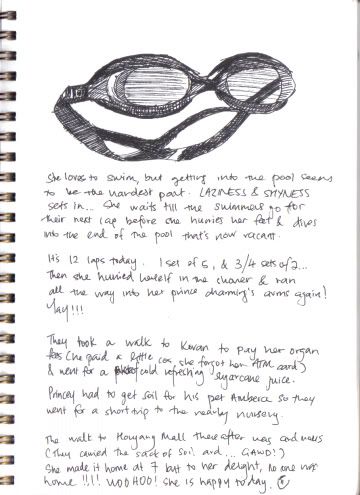 She loves to swim, but getting into the pool seems
to be the hardest part. LAZINESS & SHYNESS
sets in... She waits till the swimmers go for
their next lap before she hurries her feet & dives
into the end of the pool that's now vacant.
It's 12 laps today. 1 set of 5, & 3/4 sets of 2...
Then she hurried herself in the shower & ran
all the way into her prince charming's arms again!
Yay!!!
They took a walk to Kovan to pay her organ
fees (he paid a little cos she forgot her ATM card)
& went for a cold refreshing sugarcane juice.
Princey had to get soil for his pet Amberca so they
went for a short trip to the nearby nursery.
The walk to Hougang Mall thereafter was
(They carried the sack of soil and... GAWD!)
She made it home at 7 but to her delight, no one was
home !!!! WOOHOO! She is happy today.